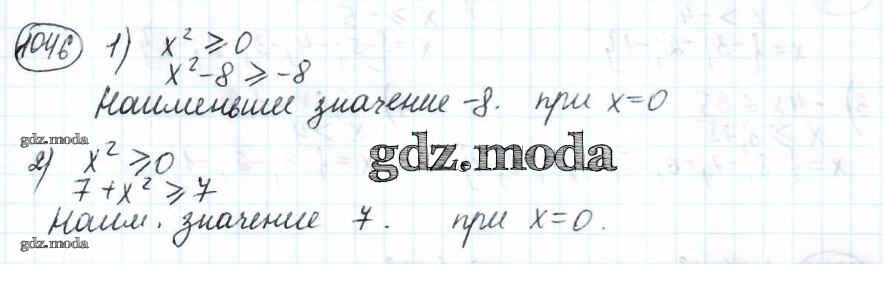 1046 1) x² ⩾ 0
x² - 8 ⩾ -8
Наименьшее значение -8. при x = 0
gdz.moda
2) x² ⩾ 0
gdz.moda
7 + x² ⩾ 7
Наим. значение 7. при x = 0.
gdz.moda